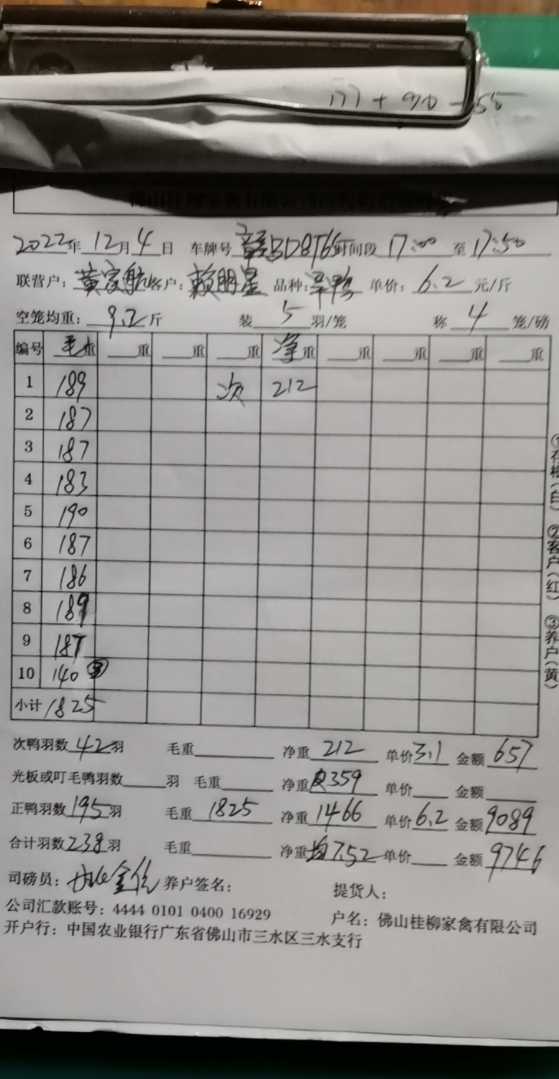 171 + 90 - 55
2022年 12月 4日 车牌号 赣BD8765 时间段 17:00 至 17:50
联营户: 黄家航 客户: 赖明星 品种: 单价: 6.2 元/斤
空笼均重: 9.2 斤 装 5 羽/笼 称 4 笼/磅
编号 毛重 重 重 重 净重 重 重 重 重
1 189 次 212
2 187
3 187
4 183
5 190
6 187
7 186
8 189
9 187
10 140 ③
小计 1825
次鸭羽数 42羽 毛重 净重 212 单价 3.1 金额 657
光板或叮毛鸭羽数 羽 毛重 净重 359 单价 金额
正鸭羽数 195羽 毛重 1825 净重 1466 单价 6.2 金额 9089
合计羽数 238羽 毛重 净重 均7.52 单价 金额 9746
司磅员: 养户签名: 提货人:
公司汇款账号: 4444 0101 0400 16929 户名: 佛山桂柳家禽有限公司
开户行: 中国农业银行广东省佛山市三水区三水支行
②客户(红) ③养户(黄)